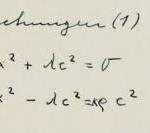 chungen (1)
x² + λc² = σ
x² - λc² = κρ c²